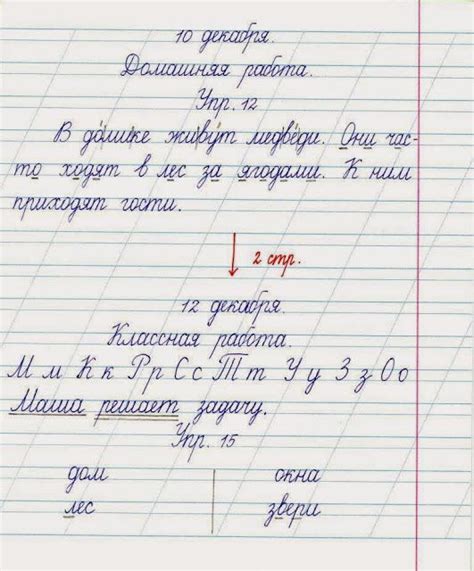 10 декабря.
Домашняя работа.
Упр. 12
В домике живут медведи. Они час-
то ходят в лес за ягодами. К ним
приходят гости.
2 стр.
12 декабря.
Классная работа.
М м К к Р р С с Т т У у З з О о
Маша решает задачу.
Упр. 15
дом окна
лес звери